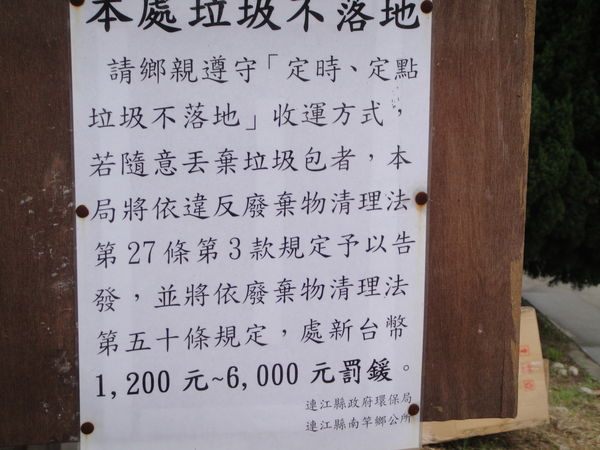 本處垃圾不落地
請鄉親遵守「定時、定點
垃圾不落地」收運方式,
若隨意丟棄垃圾包者,本
局將依違反廢棄物清理法
第27條第3款規定予以告
發,並將依廢棄物清理法
第五十條規定,處新台幣
1,200 元~6,000 元罰鍰。
連江縣政府環保局
連江縣南竿鄉公所